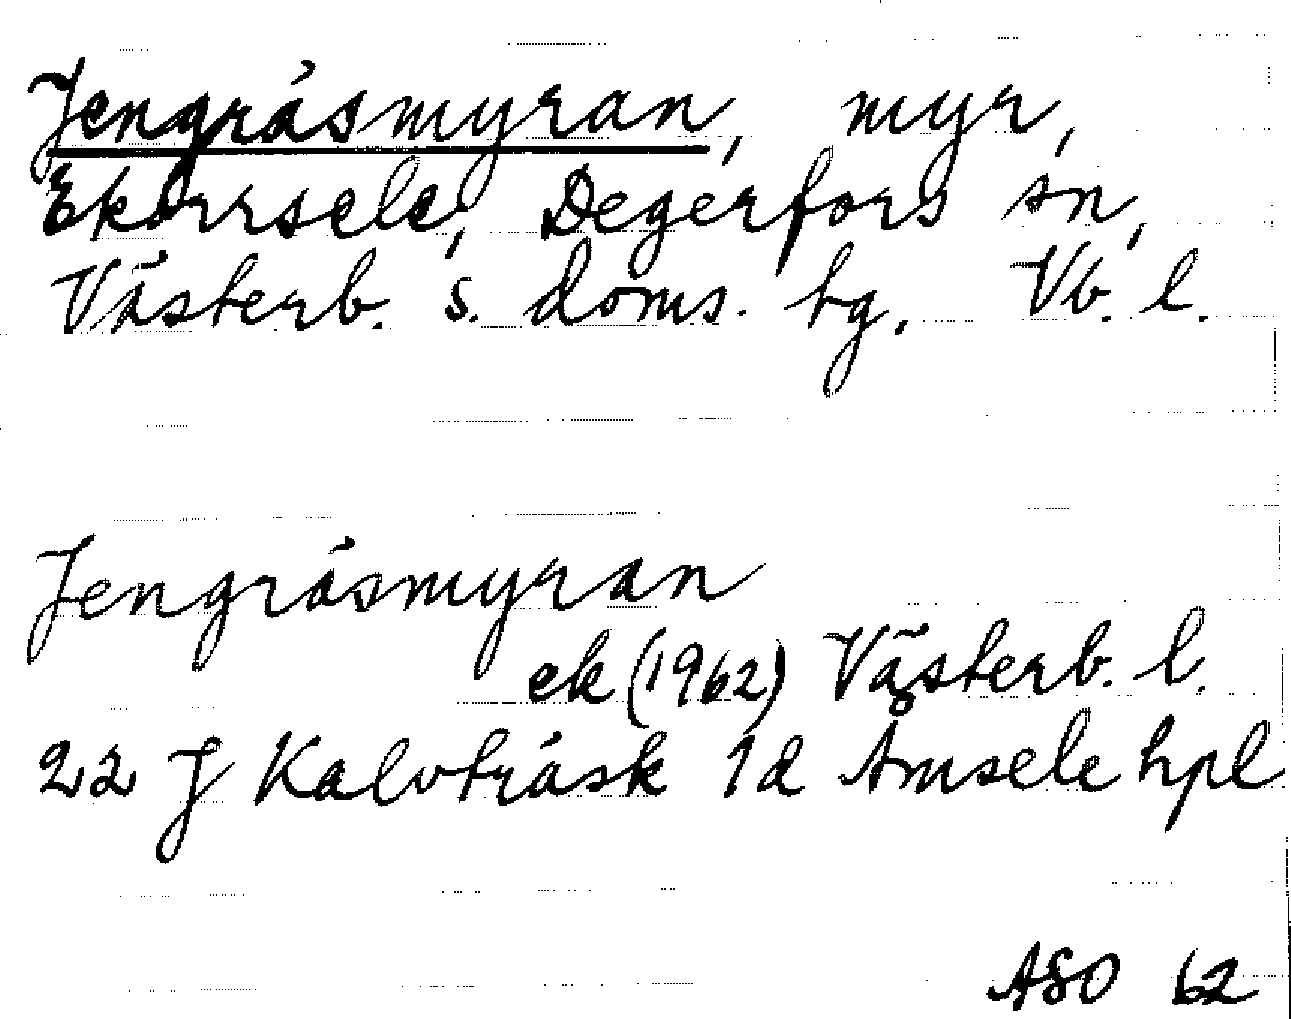 Jengräsmyran, myr,
Ekorrsele, Degerfors sn,
Västerb. s. doms. tg. Vb. l.
Jengräsmyran
ek (1962) Västerb. l.
22 J Kalvträsk 1d Åmsele hpl
ASO 62